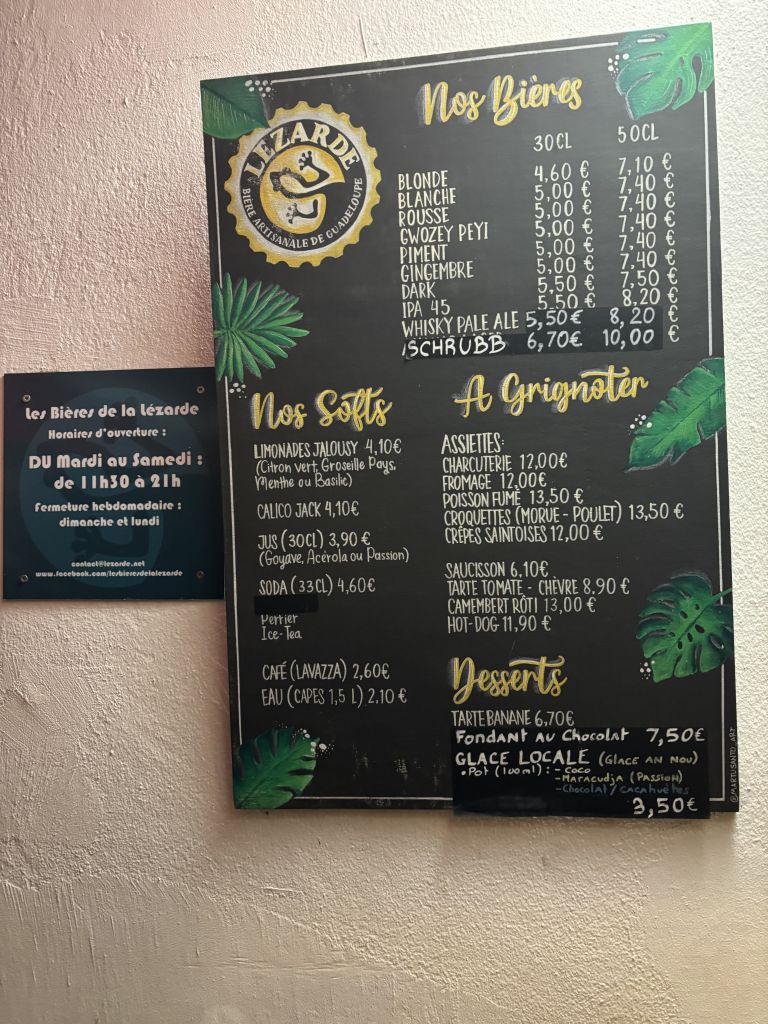 LEZARDE
BIERE ARTISANALE DE GUADELOUPE
Nos Bières
30CL 50CL
BLONDE 4,60 € 7,10 €
BLANCHE 5,00 € 7,40 €
ROUSSE 5,00 € 7,40 €
GWOZEY PEYI 5,00 € 7,40 €
PIMENT 5,00 € 7,40 €
GINGEMBRE 5,00 € 7,40 €
DARK 5,50 € 7,50 €
IPA 45 5,50 € 8,20 €
WHISKY PALE ALE 5,50€ 8,20 €
SCHRUBB 6,70€ 10,00 €
Les Bières de la Lézarde
Horaires d'ouverture :
DU Mardi au Samedi :
de 11h30 à 21h
Fermeture hebdomadaire :
dimanche et lundi
contact@lezarde.net
www.facebook.com/lesbieresdelalezarde
Nos Softs
LIMONADES JALOUSY 4,10€
(Citron vert, Groseille Pays,
Menthe ou Basilic)
CALICO JACK 4,10€
JUS (30CL) 3,90 €
(Goyave, Acérola ou Passion)
SODA (33CL) 4,60€
Perrier
Ice-Tea
CAFÉ (LAVAZZA) 2,60€
EAU (CAPES 1,5 L) 2,10 €
A Grignoter
ASSIETTES:
CHARCUTERIE 12,00€
FROMAGE 12,00€
POISSON FUMÉ 13,50 €
CROQUETTES (MORUE - POULET) 13,50 €
CRÊPES SAINTOISES 12,00 €
SAUCISSON 6,10€
TARTE TOMATE - CHÈVRE 8,90 €
CAMEMBERT RÔTI 13,00 €
HOT-DOG 11,90 €
Desserts
TARTE BANANE 6,70€
Fondant au Chocolat 7,50€
GLACE LOCALE (GLACE AN NOU)
• Pot (100ml) : - Coco
- Maracudja (Passion)
- Chocolat / Cacahuètes
3,50€
@MARTUSANTO_ART